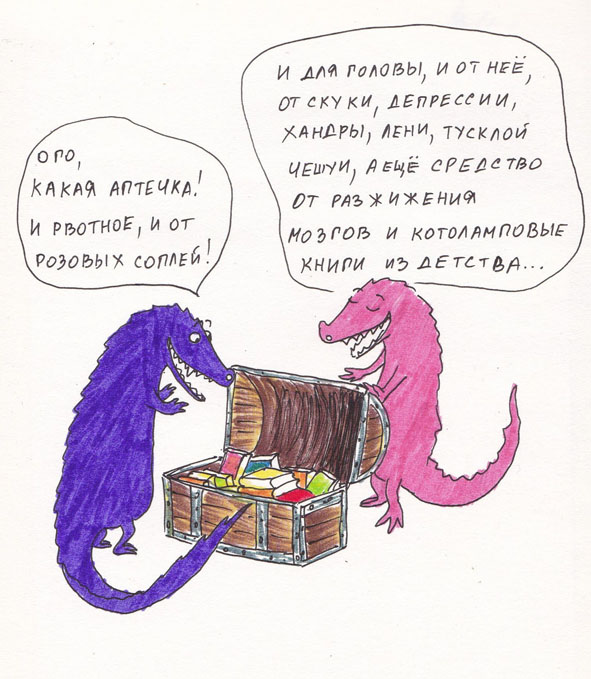 ОГО,
КАКАЯ АПТЕЧКА!
И РВОТНОЕ, И ОТ
РОЗОВЫХ СОПЛЕЙ!
И ДЛЯ ГОЛОВЫ, И ОТ НЕЁ,
ОТ СКУКИ, ДЕПРЕССИИ,
ХАНДРЫ, ЛЕНИ, ТУСКЛОЙ
ЧЕШУИ, А ЕЩЁ СРЕДСТВО
ОТ РАЗЖИЖЕНИЯ
МОЗГОВ И КОТОЛАМПОВЫЕ
КНИГИ ИЗ ДЕТСТВА...